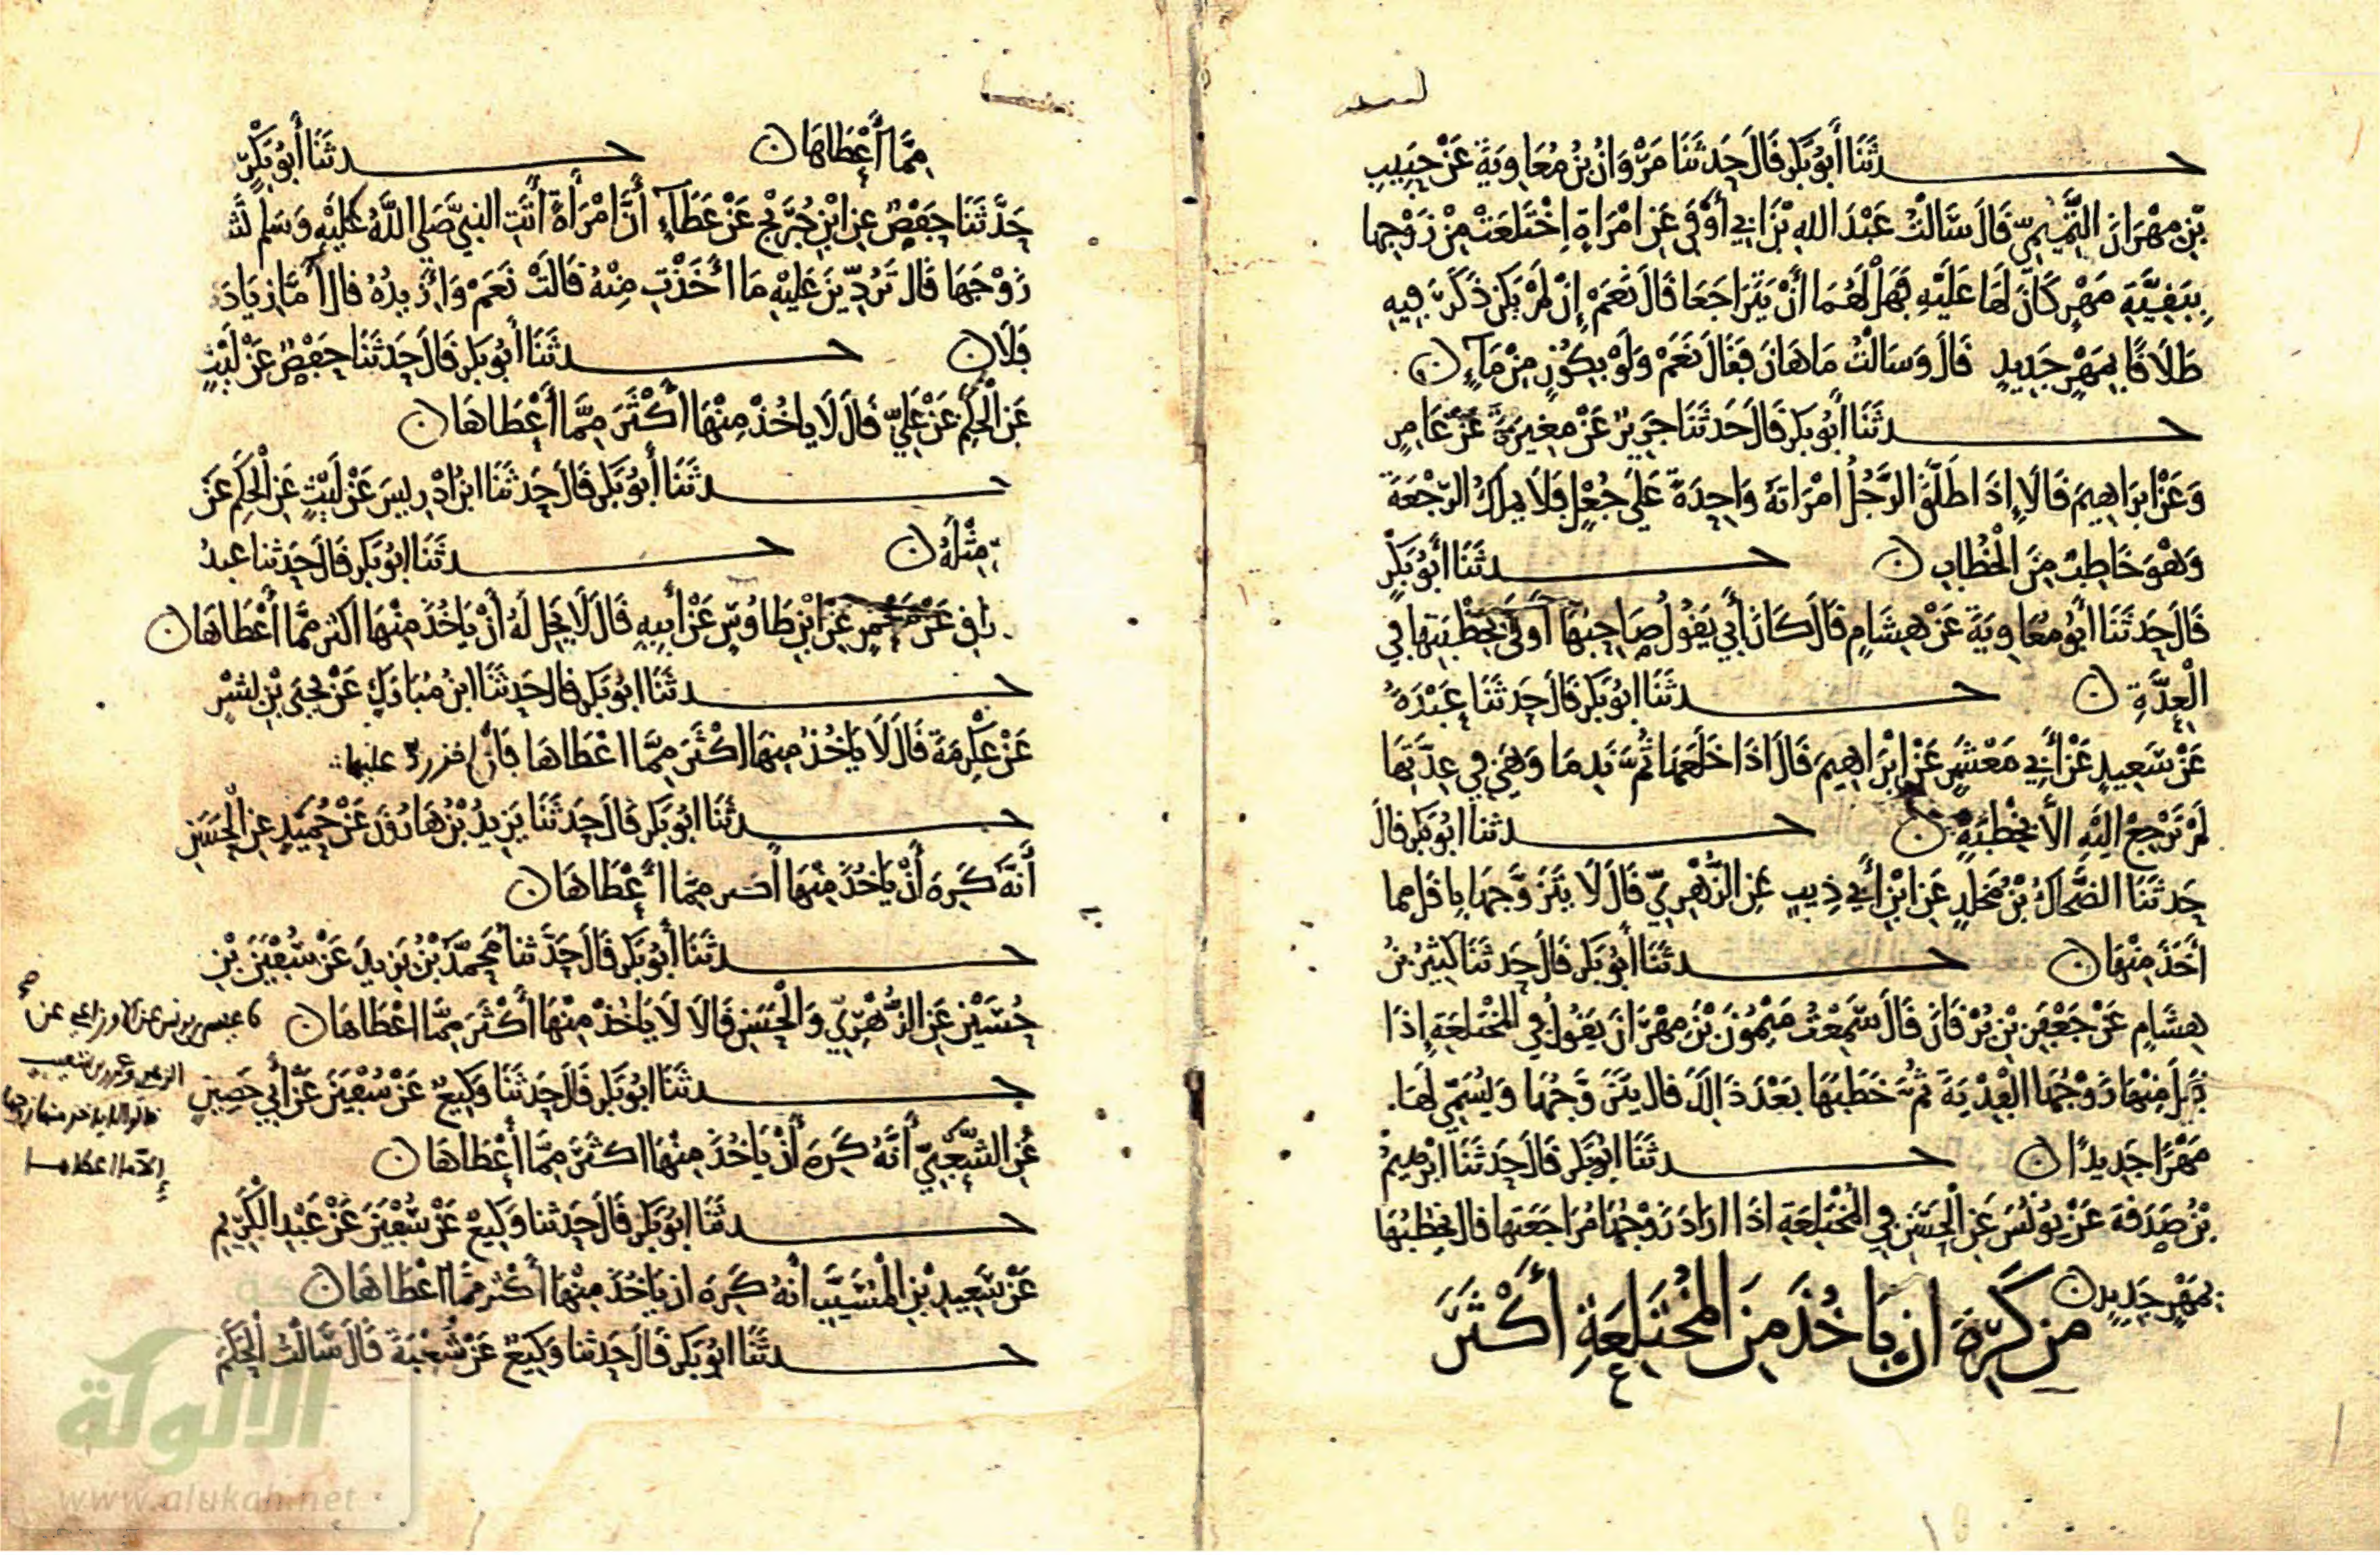 حدثنا أبو بكر قال حدثنا مروان بن معاوية عن حبيب
بن مهران التيمي قال سالت عبد الله بن ابي أوفى عن امراة اختلعت من زوجها
ببقية مهر كان لها عليه فهل لهما أن يتراجعا قال نعم إن لم يكن ذكر فيه
طلاقا بمهر جديد قال وسالت ماهان فقال نعم ولو بكوز من ماء ن
حدثنا أبو بكر قال حدثنا جرير عن مغيرة عن عامر
وعن ابراهيم قالا إذا طلق الرجل امراته واحدة على جعل فلا يملك الرجعة
وهو خاطب من الخطاب ن حدثنا أبو بكر
قال حدثنا أبو معاوية عن هشام قال كان أبي يقول صاحبها أولى بخطبتها في
العدة ن حدثنا ابو بكر قال حدثنا عبدة
عن سعيد عن أبي معشر عن إبراهيم قال اذا خلعها ثم ندما وهي في عدتها
لم ترجع اليه الا بخطبة ن حدثنا ابو بكر قال
حدثنا الضحاك بن مخلد عن ابن أبي ذيب عن الزهري قال لا يتزوجها باقل مما
أخذ منها ن حدثنا أبو بكر قال حدثنا كثير بن
هشام عن جعفر بن برقان قال سمعت ميمون بن مهران يقول في المختلعة إذا
قبل منها زوجها الفدية ثم خطبها بعد ذالك قال يتزوجها ويسمي لها
مهرا جديدا ن حدثنا ابو بكر قال حدثنا ابرهيم
بن صدقة عن يونس عن الحسن في المختلعة اذا اراد زوجها مراجعتها قال يخطبها
بمهر جديد ن
من كره ان ياخذ من المختلعة أكثر
مما أعطاها ن حدثنا أبو بكر
حدثنا حفص عن ابن جريج عن عطاء أن امرأة أتت النبي صلى الله عليه وسلم
زوجها قال تردين عليه ما أخذت منه قالت نعم وأزيده قال أما زيادة
فلا ن حدثنا أبو بكر قال حدثنا حفص عن ليث
عن الحكم عن علي قال لا ياخذ منها أكثر مما أعطاها ن
حدثنا أبو بكر قال حدثنا ابن ادريس عن ليث عن الحكم عن
مثله ن حدثنا ابو بكر قال حدثنا عبد
الرزاق عن معمر عن ابن طاوس عن أبيه قال لا يحل له أن ياخذ منها اكثر مما أعطاها ن
حدثنا ابو بكر قال حدثنا ابن مبارك عن يحيى بن بشر
عن عكرمة قال لا ياخذ منها اكثر مما اعطاها
حدثنا ابو بكر قال حدثنا يزيد بن هارون عن حميد عن الحسن
أنه كره أن ياخذ منها اكثر مما أعطاها ن
حدثنا أبو بكر قال حدثنا محمد بن يزيد عن سفين بن
حسين عن الزهري والحسن قالا لا ياخذ منها أكثر مما اعطاها ن
عيسى بن يونس عن الاوزاعي عن
الزهري وعمرو بن شعيب
الا ما اعطاها
حدثنا ابو بكر قال حدثنا وكيع عن سفين عن أبي حصين
عن الشعبي أنه كره أن ياخذ منها اكثر مما أعطاها ن
حدثنا ابو بكر قال حدثنا وكيع عن سفين عن عبد الكريم
عن سعيد بن المسيب أنه كره ان ياخذ منها أكثر مما اعطاها ن
حدثنا ابو بكر قال حدثنا وكيع عن شعبة قال سالت الحكم
الألوكة
www.alukah.net